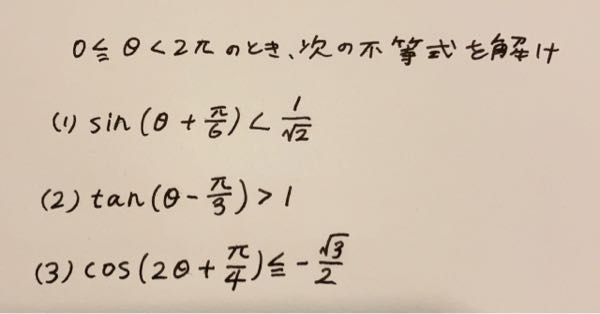 0≦θ<2πのとき、次の不等式を解け
(1) sin(θ+π/6)<1/√2
(2) tan(θ-π/3)>1
(3) cos(2θ+π/4)≦-√3/2